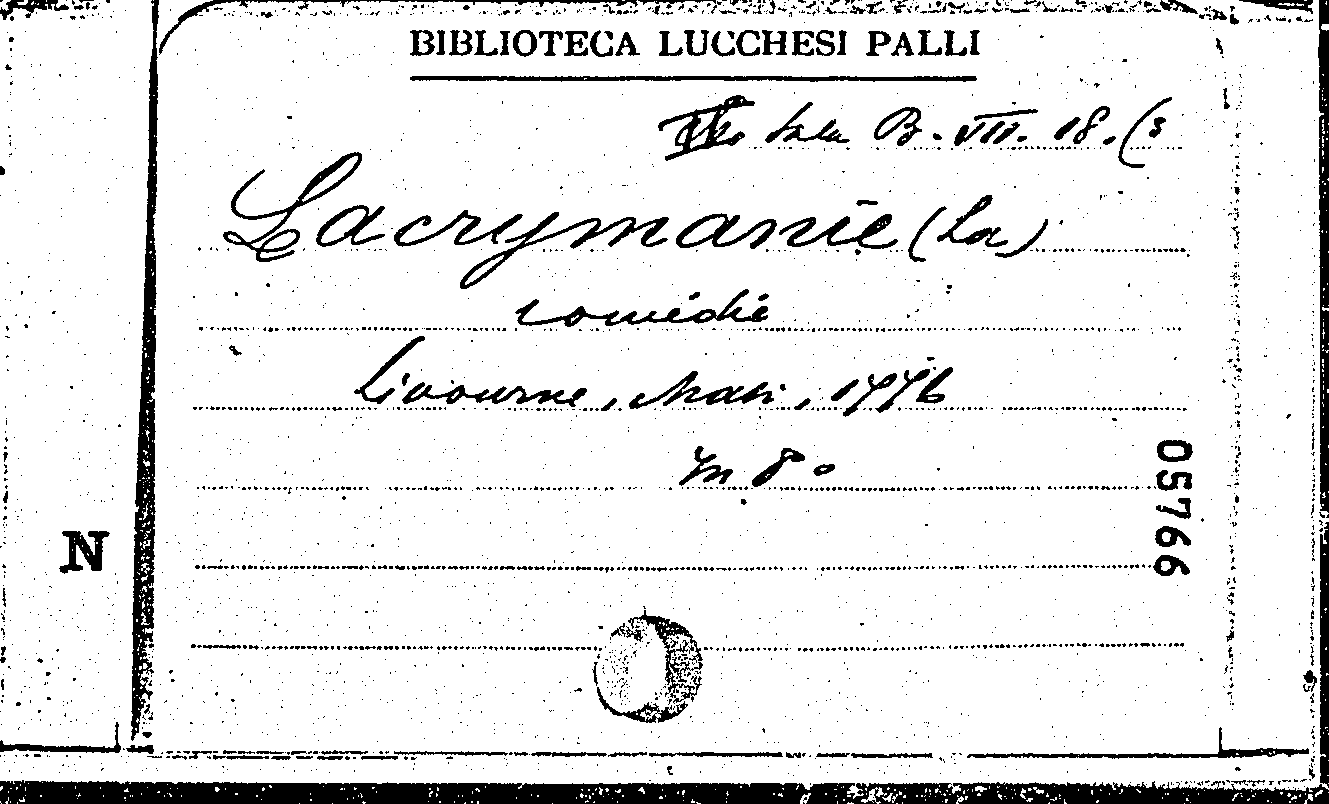 BIBLIOTECA LUCCHESI PALLI
Sala B. VIII. 18. (3
Lacrymanie (La)
comédie
Livourne, Masi, 1776
in 8°
05766
N